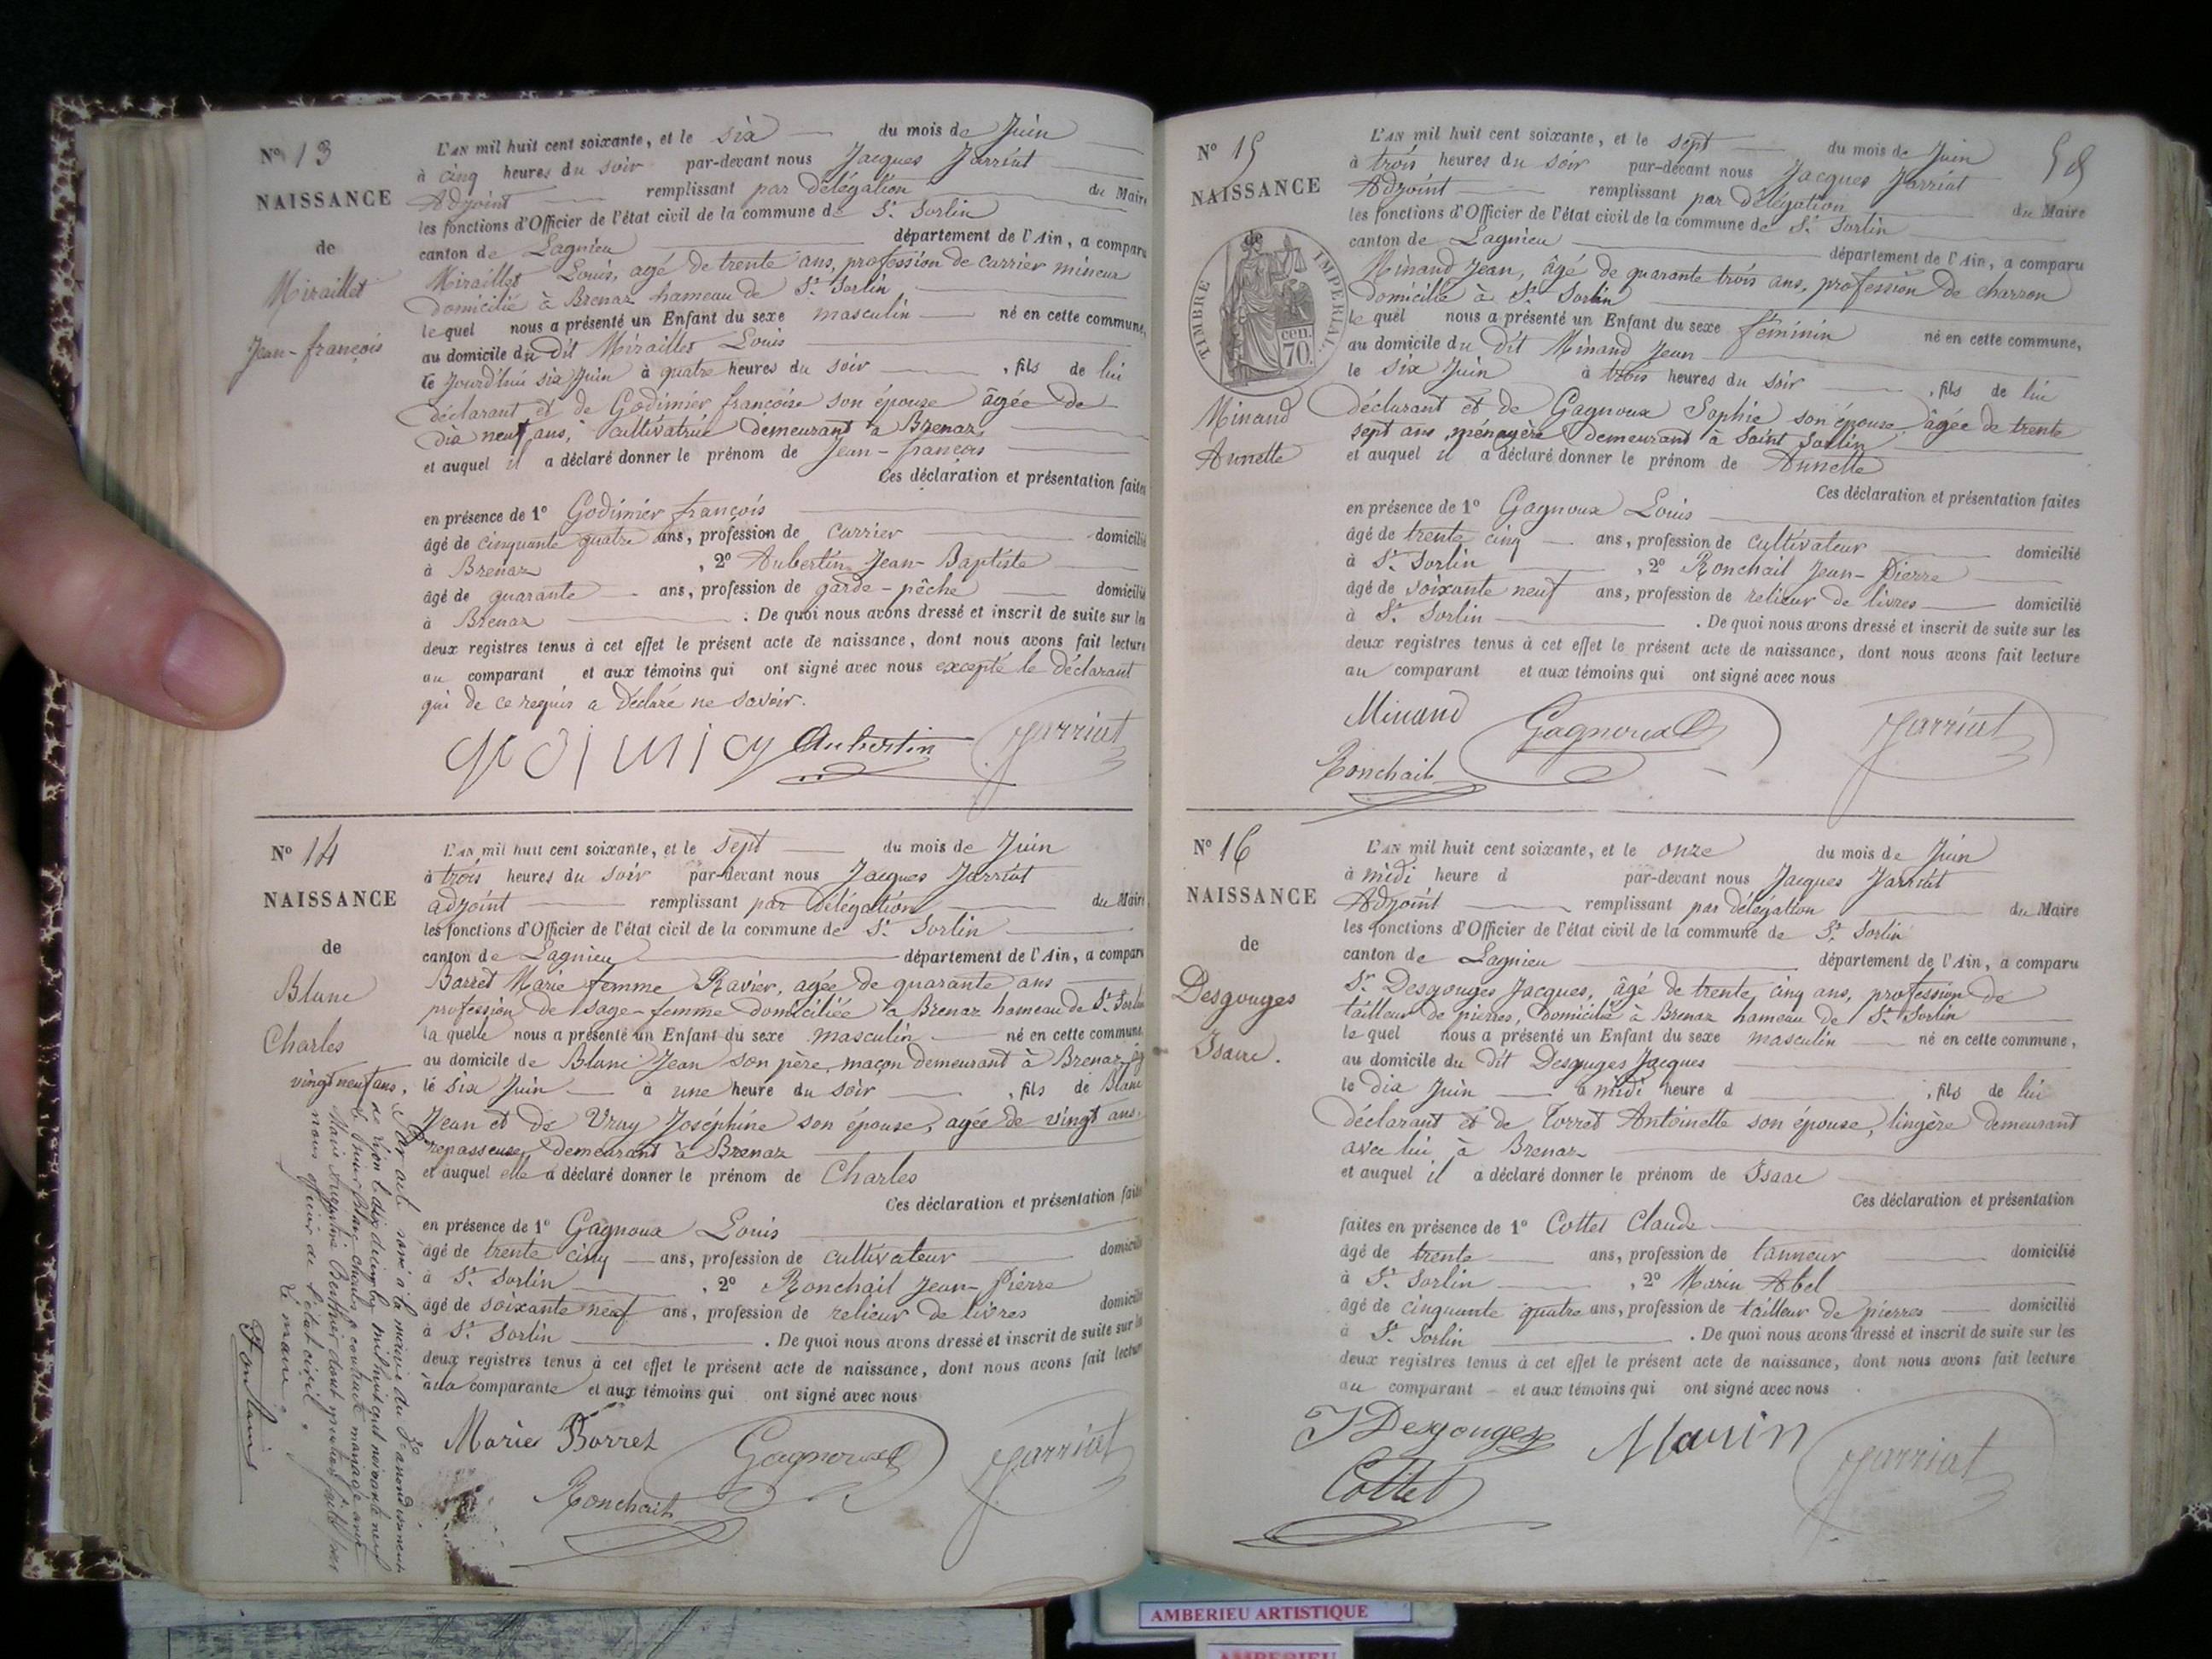 N° 13
NAISSANCE
de
Miraillet
Jean-françois
L'AN mil huit cent soixante, et le six du mois de Juin
à cinq heures du soir par-devant nous Jacques Jarriat
Adjoint remplissant par délégation du Maire
les fonctions d'Officier de l'état civil de la commune de St. Sorlin
canton de Lagnieu département de l'Ain, a comparu
Miraillet Louis, agé de trente ans, profession de carrier mineur
domicilié à Brenaz hameau de St. Sorlin
le quel nous a présenté un Enfant du sexe masculin né en cette commune,
au domicile du dit Miraillet Louis
le Jourd'hui six Juin à quatre heures du soir , fils de lui
déclarant et de Godimier françoise son épouse âgée de
dix neuf ans, cultivatrice demeurant à Brenaz
et auquel il a déclaré donner le prénom de Jean-françois
Ces déclaration et présentation faites
en présence de 1° Godimier françois
âgé de cinquante quatre ans, profession de carrier domicilié
à Brenaz , 2° Aubertin Jean-Baptiste
âgé de quarante ans, profession de garde-pêche domicilié
à Brenaz . De quoi nous avons dressé et inscrit de suite sur les
deux registres tenus à cet effet le présent acte de naissance, dont nous avons fait lecture
au comparant et aux témoins qui ont signé avec nous excepté le déclarant
qui de ce requis a déclaré ne savoir.
Aubertin Jarriat
N° 14
NAISSANCE
de
Blanc
Charles
vingt neuf ans,
L'AN mil huit cent soixante, et le sept du mois de Juin
à trois heures du soir par-devant nous Jacques Jarriat
adjoint remplissant par délégation du Maire
les fonctions d'Officier de l'état civil de la commune de St. Sorlin
canton de Lagnieu département de l'Ain, a comparu
Barret Marie femme Ravier, agée de quarante ans
profession de sage-femme domiciliée à Brenaz hameau de St. Sorlin
la quelle nous a présenté un Enfant du sexe masculin né en cette commune,
au domicile de Blanc Jean son père, maçon demeurant à Brenaz, âgé
le six Juin à une heure du soir , fils de Blanc
Jean et de Vray Joséphine son épouse, agée de vingt ans,
repasseuse, demeurant à Brenaz
et auquel elle a déclaré donner le prénom de Charles
Ces déclaration et présentation faites
en présence de 1° Gagnoux Louis
âgé de trente cinq ans, profession de cultivateur domicilié
à St. Sorlin , 2° Ronchail Jean-Pierre
âgé de soixante neuf ans, profession de relieur de livres domicilié
à St. Sorlin . De quoi nous avons dressé et inscrit de suite sur les
deux registres tenus à cet effet le présent acte de naissance, dont nous avons fait lecture
à la comparante et aux témoins qui ont signé avec nous
Marie Barret Gagnoux Jarriat
Ronchail
Par acte passé à la mairie du 3e arrondissement
de Lyon le dix décembre mil huit cent noivante neuf
Blanc Charles a contracté mariage avec
Marie Augustine dont mention faite par
nous officier de l'état civil.
Le maire,
N° 15
58
NAISSANCE
de
TIMBRE IMPERIAL.
cen.
70.
Minand
Annette
L'AN mil huit cent soixante, et le sept du mois de Juin
à trois heures du soir par-devant nous Jacques Jarriat
Adjoint remplissant par délégation du Maire
les fonctions d'Officier de l'état civil de la commune de St. Sorlin
canton de Lagnieu département de l'Ain, a comparu
Minand Jean, âgé de quarante trois ans, profession de charron
domicilié à St. Sorlin
le quel nous a présenté un Enfant du sexe féminin né en cette commune,
au domicile du dit Minand Jean
le six Juin à trois heures du soir , fils de lui
déclarant et de Gagnoux Sophie son épouse âgée de trente
sept ans, ménagère demeurant à Saint Sorlin
et auquel il a déclaré donner le prénom de Annette
Ces déclaration et présentation faites
en présence de 1° Gagnoux Louis
âgé de trente cinq ans, profession de cultivateur domicilié
à St. Sorlin , 2° Ronchail Jean-Pierre
âgé de soixante neuf ans, profession de relieur de livres domicilié
à St. Sorlin . De quoi nous avons dressé et inscrit de suite sur les
deux registres tenus à cet effet le présent acte de naissance, dont nous avons fait lecture
au comparant et aux témoins qui ont signé avec nous
Minand Gagnoux Jarriat
Ronchail
N° 16
NAISSANCE
de
Desgouges
Isaac.
L'AN mil huit cent soixante, et le onze du mois de Juin
à midi heure d par-devant nous Jacques Jarriat
Adjoint remplissant par délégation du Maire
les fonctions d'Officier de l'état civil de la commune de St. Sorlin
canton de Lagnieu département de l'Ain, a comparu
Sr. Desgouges Jacques, âgé de trente cinq ans, profession de
tailleur de pierres, domicilié à Brenaz hameau de St. Sorlin
le quel nous a présenté un Enfant du sexe masculin né en cette commune,
au domicile du dit Desgouges Jacques
le dix Juin à midi heure d , fils de lui
déclarant et de Torret Antoinette son épouse, lingère demeurant
avec lui à Brenaz
et auquel il a déclaré donner le prénom de Isaac
Ces déclaration et présentation
faites en présence de 1° Cottet Claude
âgé de trente ans, profession de tanneur domicilié
à St. Sorlin , 2° Marin Abel
âgé de cinquante quatre ans, profession de tailleur de pierres domicilié
à St. Sorlin . De quoi nous avons dressé et inscrit de suite sur les
deux registres tenus à cet effet le présent acte de naissance, dont nous avons fait lecture
au comparant et aux témoins qui ont signé avec nous
J Desgouges Marin Jarriat
Cottet
AMBERIEU ARTISTIQUE
AMBERIEU